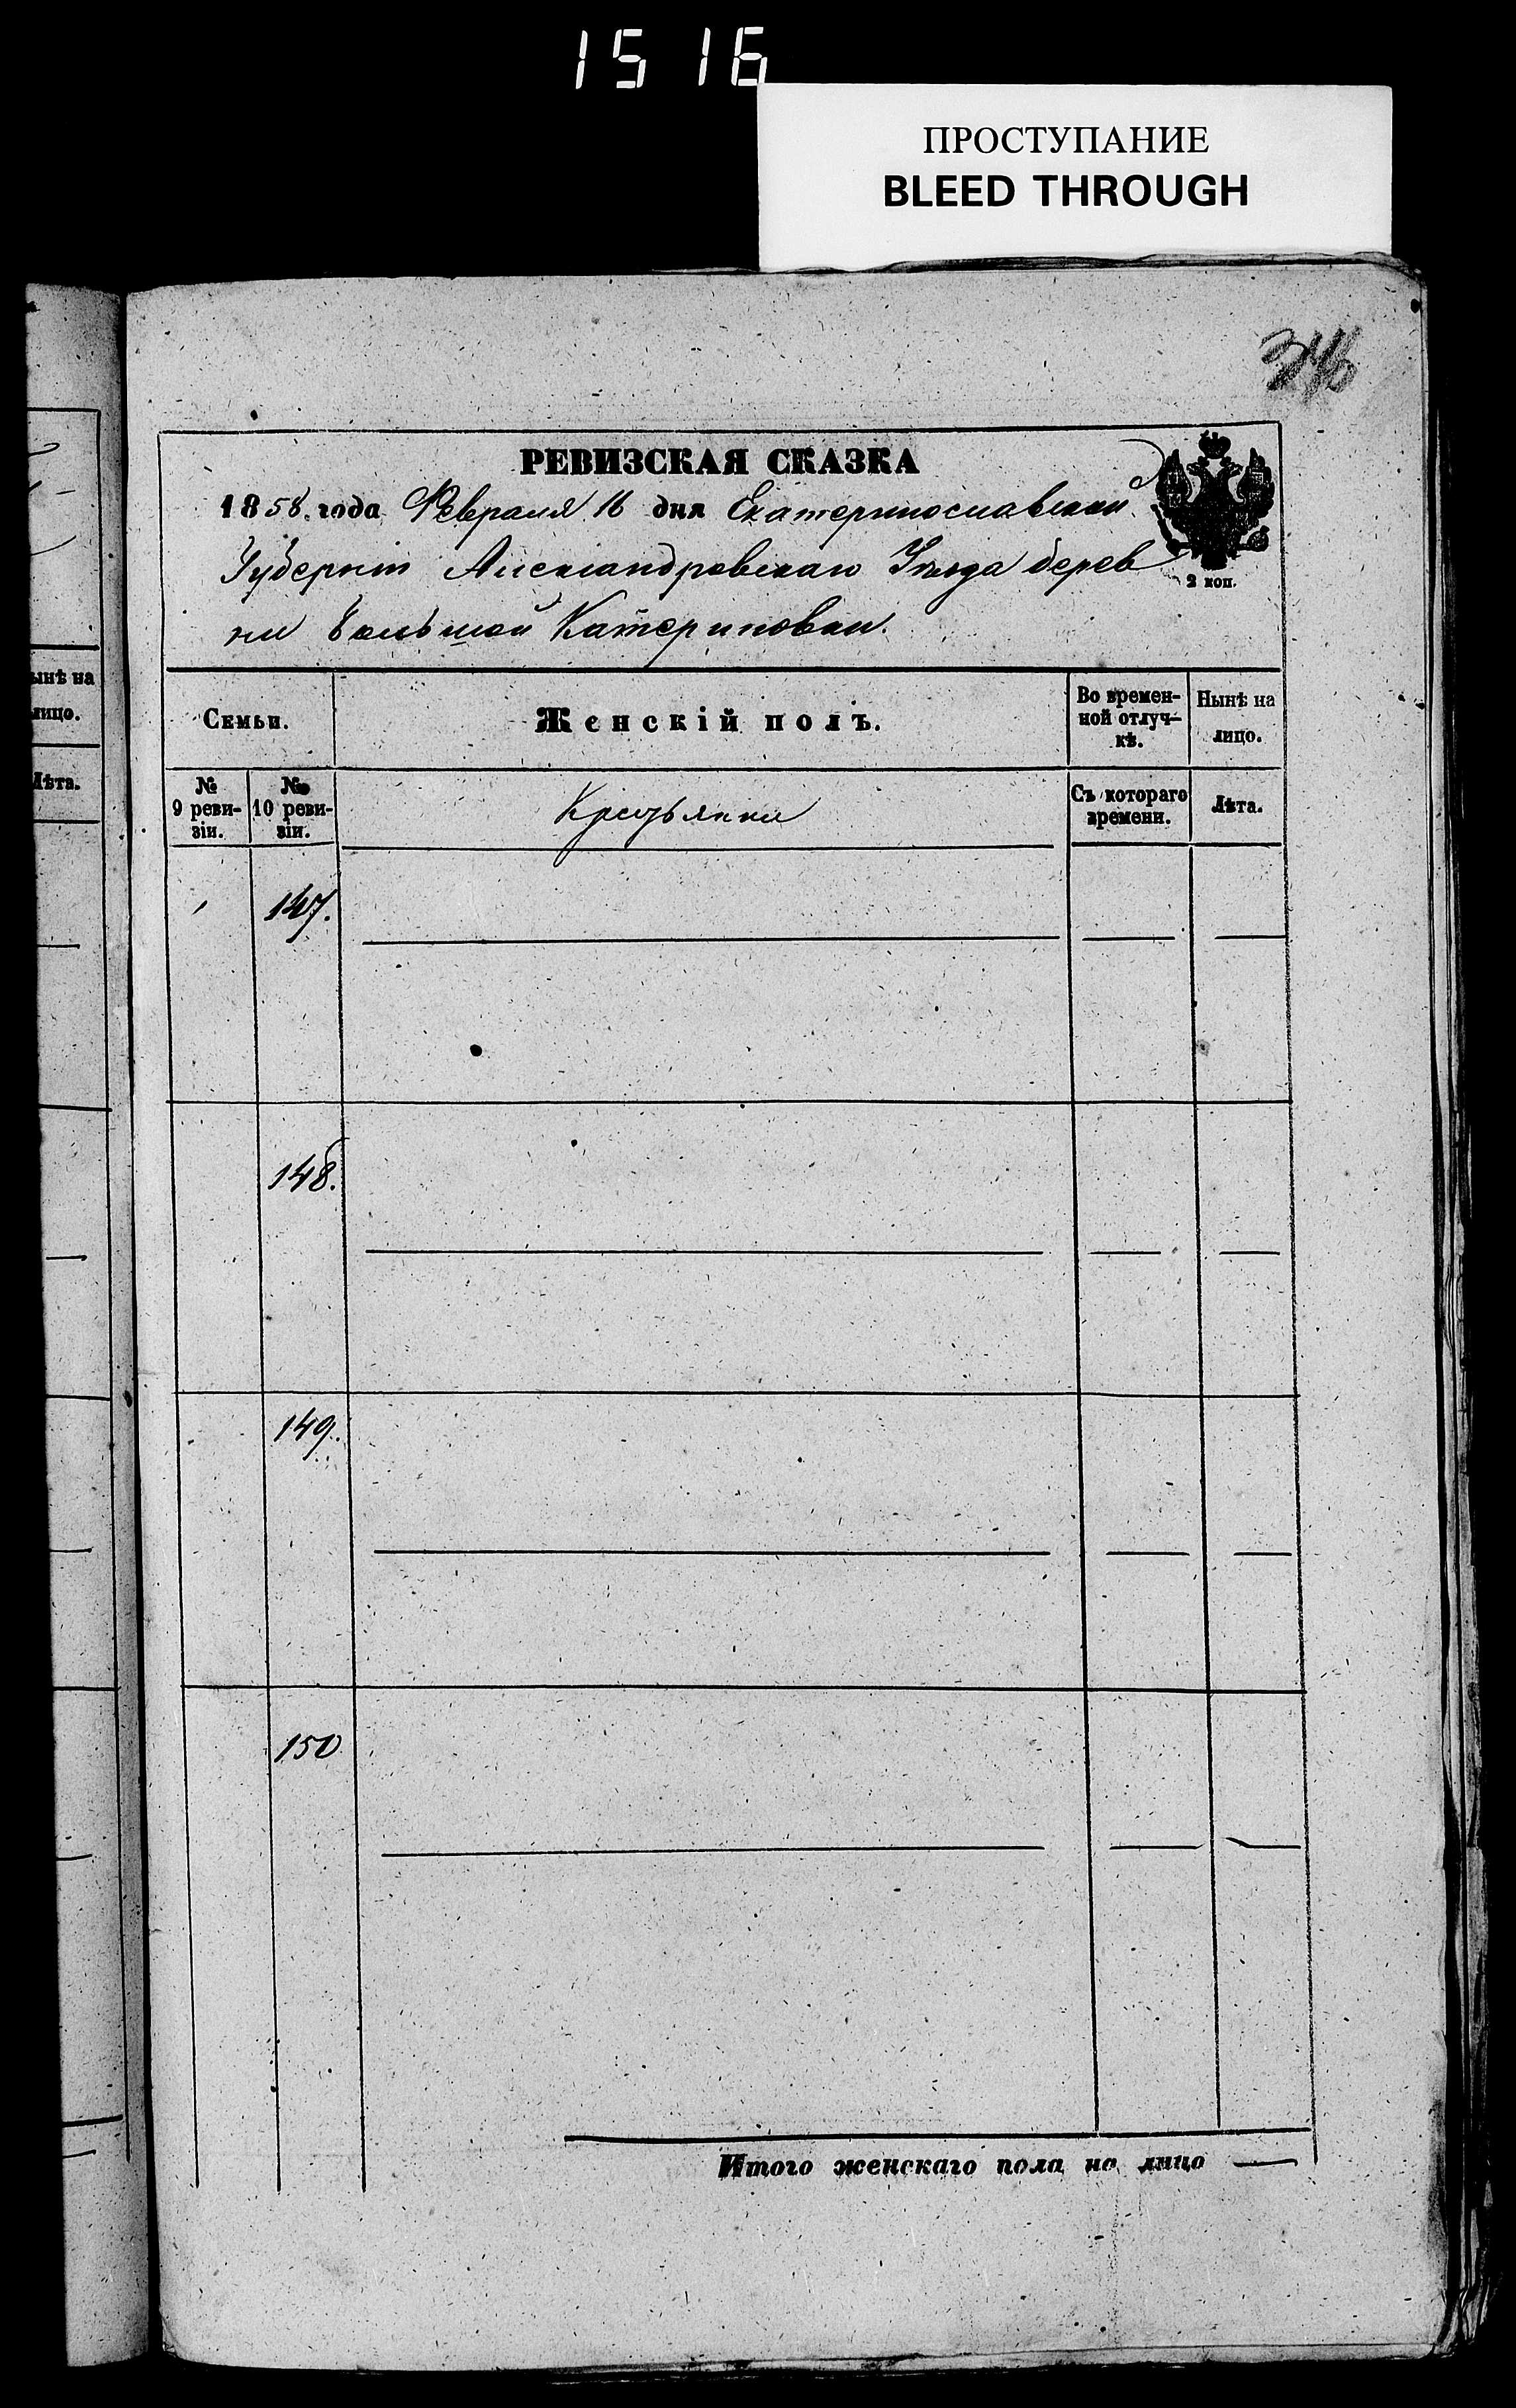 1516
ПРОСТУПАНИЕ
BLEED THROUGH
346
РЕВИЗСКАЯ СКАЗКА
1858. года Февраля 16 дня Екатеринославской
Губерніи Александровскаго Уѣзда дерев
ни Большой Катериновки.
2 коп.
ынѣ на
лицо.
Лѣта.
Семьи.
Женскій полъ.
Во времен-
ной отлуч-
кѣ.
Нынѣ на
лицо.
№
9 реви-
зіи.
№
10 реви-
зіи.
Крестьяне
Съ котораго
времени.
Лѣта.
147.
148.
149.
150
Итого женскаго пола на лицо —